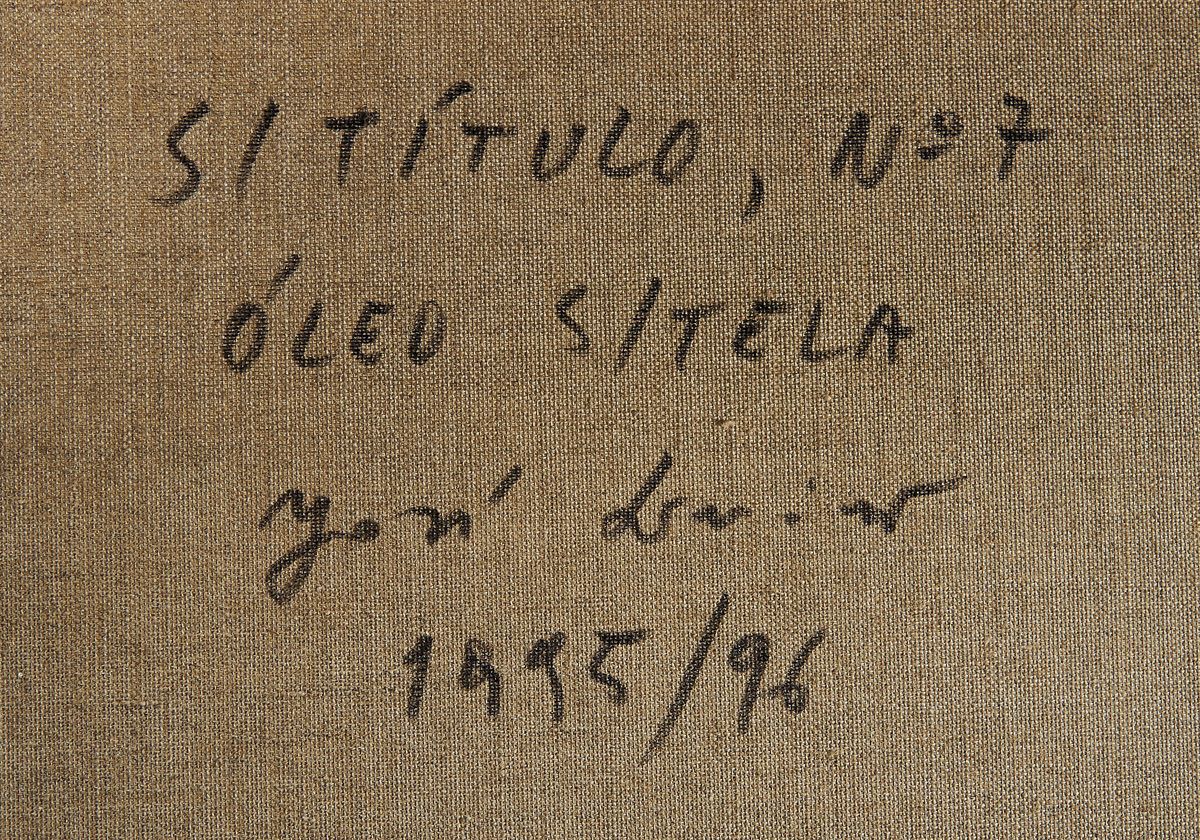 S/ TÍTULO, Nº 7
ÓLEO S/TELA
José
1995/96